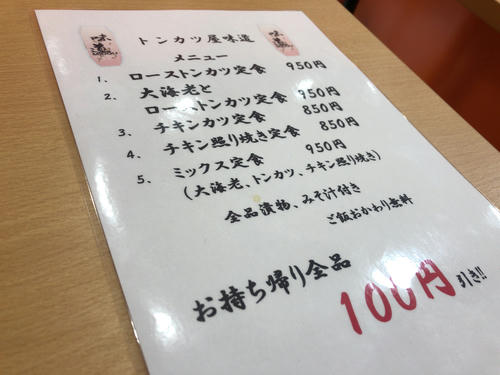 味道
トンカツ屋味道
メニュー
1、 ローストンカツ定食 950円
2、 大海老と
ローストンカツ定食 950円
3、 チキンカツ定食 850円
4、 チキン照り焼き定食 850円
5、 ミックス定食 950円
(大海老、トンカツ、チキン照り焼き)
全品漬物、みそ汁付き
ご飯おかわり無料
お持ち帰り全品
100円引き!!